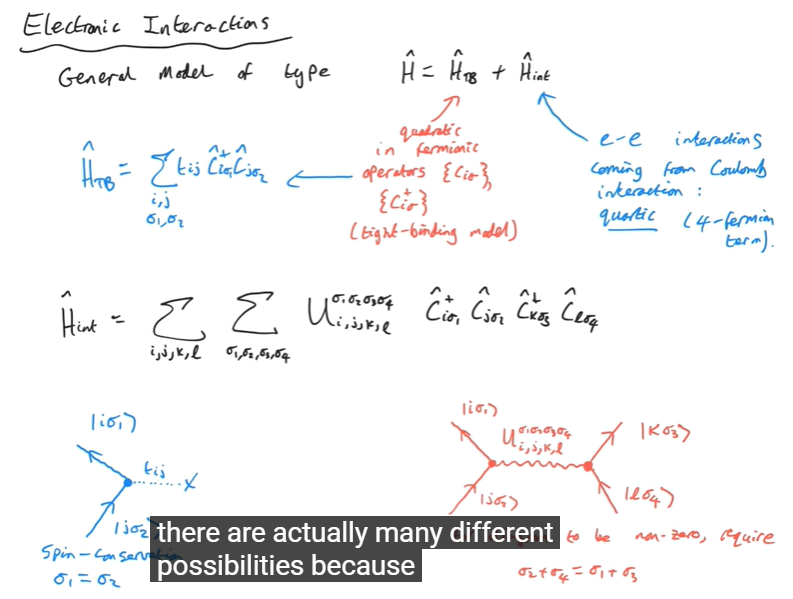 Electronic Interactions
General Model of type Ĥ = Ĥ_TB + Ĥ_int
quadratic
in fermionic
operators {C_iσ},
{C⁺_iσ}
(tight-binding model)
e-e interactions
coming from Coulomb
interaction :
quartic (4-fermion
term).
Ĥ_TB = ∑ t_ij Ĉ⁺_iσ₁ Ĉ_jσ₂
i,j
σ₁,σ₂
Ĥ_int = ∑ ∑ U^σ₁σ₂σ₃σ₄_i,j,k,l Ĉ⁺_iσ₁ Ĉ_jσ₂ Ĉ⁺_kσ₃ Ĉ_lσ₄
i,j,k,l σ₁,σ₂,σ₃,σ₄
|iσ₁⟩
t_ij
|jσ₂
Spin-conservation
σ₁ = σ₂
|iσ₁⟩
U^σ₁σ₂σ₃σ₄_i,j,k,l
|kσ₃⟩
|jσ₂⟩
|lσ₄⟩
to be non-zero, require
σ₂+σ₄ = σ₁+σ₃
there are actually many different
possibilities because